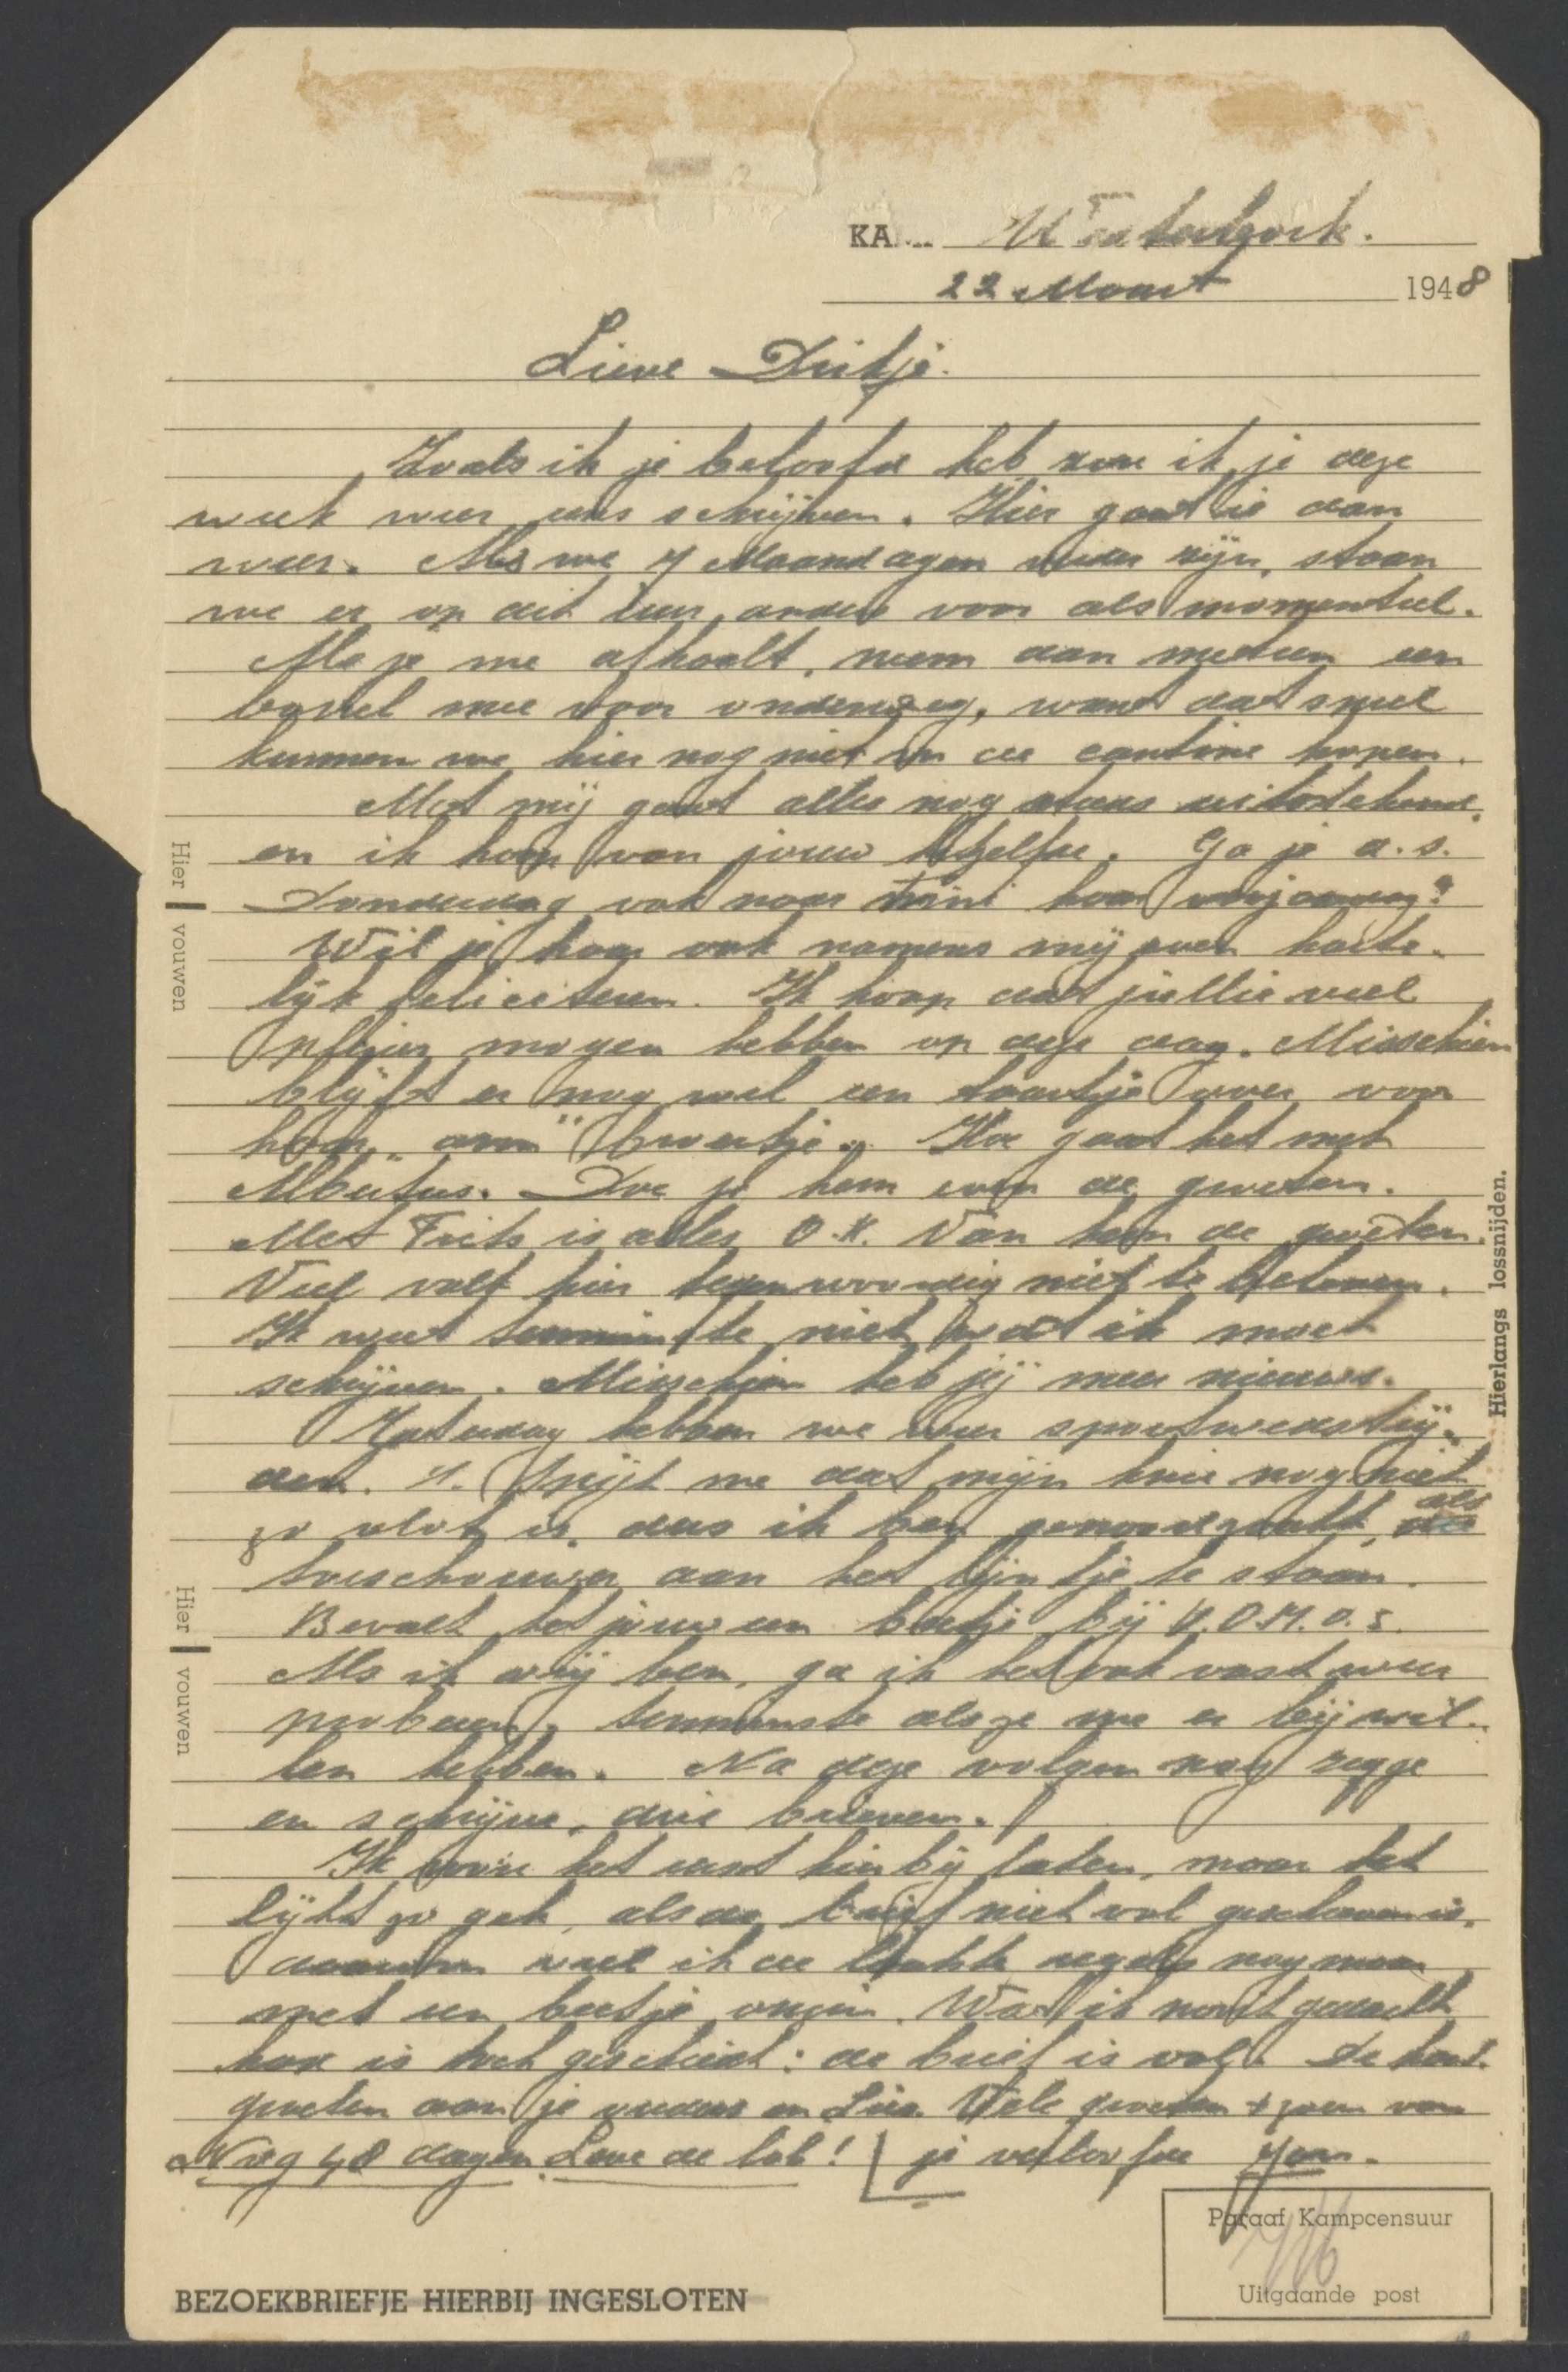 KA
Westerbork.
22 Maart 1948
Lieve Dritje.
Zoals ik je beloofde heb zou ik je deze
week weer eens schrijven. Hier gaat ie dan
weer. Als we 7 Maandagen verder zijn, staan
we er op dit uur anders voor als momenteel.
Als je me afhaalt, neem dan meteen een
borrel mee voor onderweg, want dat spul
kunnen we hier nog niet in de cantine kopen.
Met mij gaat alles nog steeds uitstekend,
en ik hoop van jouw hetzelfde. Ga je a.s.
Donderdag ook naar Trini haar verjaardag?
Wil je haar ook namens mij even harte-
lijk feliciteren. Ik hoop dat jullie veel
plezier mogen hebben op deze dag. Misschien
blijft er nog wel een taartje over voor
haar "arm" broertje. Hoe gaat het met
Albertus. Doe je hem even de groeten.
Met Frits is alles O.K. Van hem de groeten.
Veel valt hier tegenwoordig niet te beleven.
Ik weet tenminste niet wat ik moet
schrijven. Misschien heb jij meer nieuws.
Zaterdag hebben we weer sportwedstrij-
den. Spijt me dat mijn knie nog niet
zo vlot is, dus ik ben genoodzaakt als
toeschouwer aan het lijntje te staan.
Bevalt het jouw een beetje bij V.O.M.O.S.
Als ik vrij ben, ga ik het ook vast weer
proberen, tenminste als ze me er bij wil-
len hebben. Na deze volgen nog zegge
en schrijve, drie brieven.
Ik wou het eerst hierbij laten, maar het
lijkt zo gek, als de brief niet vol geschreven is,
daarom vul ik de laatste regels nog maar
met een beetje onzin. Wat ik nooit gedacht
had is toch geschied: de brief is vol. De hart.
groeten aan je ouders en Lies. Vele groeten + zoen van
Nog 48 dagen Leve de lol! je verloofde Jan.
Hier vouwen
Hier vouwen
Hierlangs lossnijden.
Paraaf Kampcensuur
Uitgaande post
BEZOEKBRIEFJE HIERBIJ INGESLOTEN